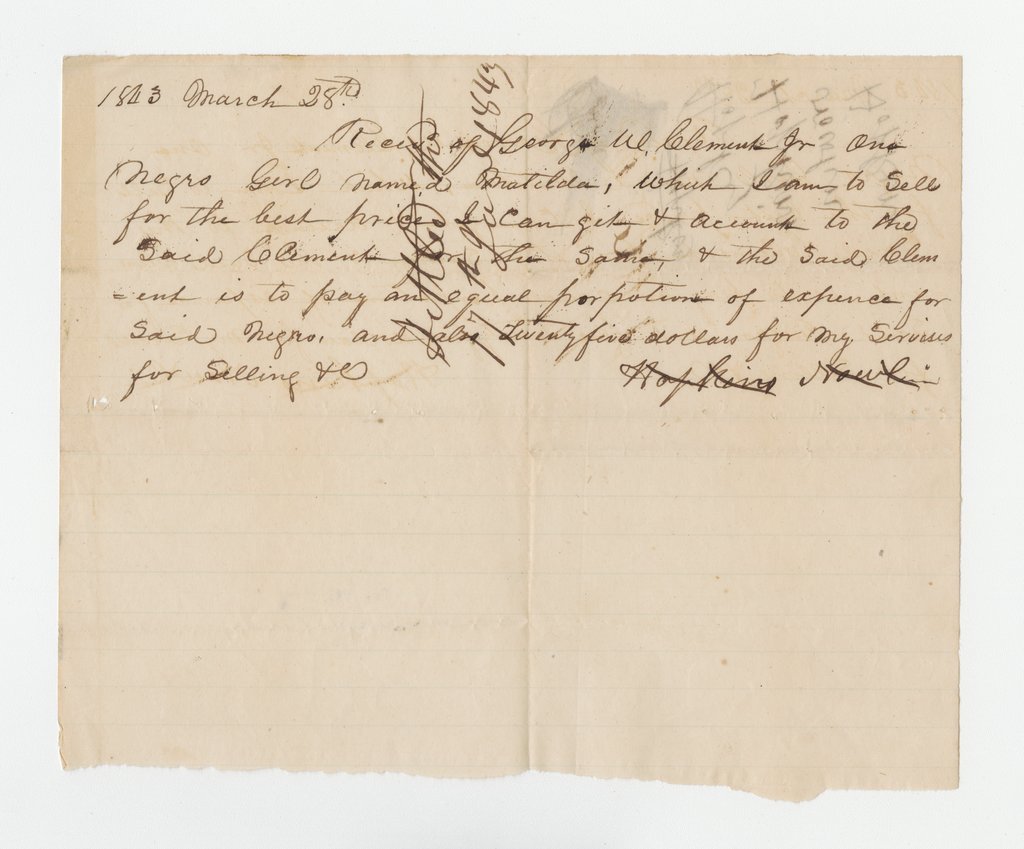 1843 March 28th.
Receivd of George W. Clement Jr One
Negro Girl named Matilda, which I am to Sell
for the best price I can get & account to the
Said Clement for the Same, & the Said Clem
=ent is to pay an equal porpotion of expence for
Said Negro, and also Twentyfive dollars for my Servises
for Selling &C
Hopkins Nowlin
Settled
1843